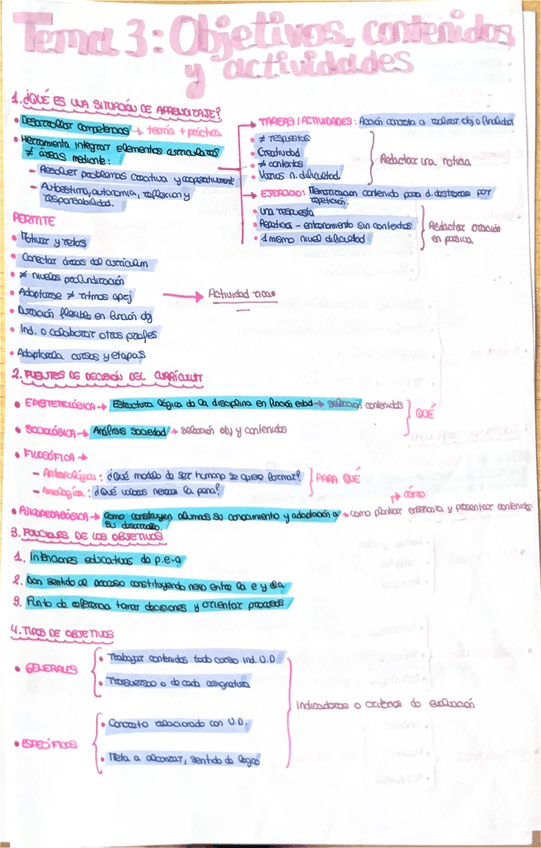 Tema 3: Objetivos, contenidos
y actividades
1. ¿QUÉ ES UNA SITUACIÓN DE APRENDIZAJE?
• Desarrollar competencias → teoría + práctica
• Herramienta integrar elementos curriculares
≠ áreas mediante:
– Resolver problemas creativa y cooperativamente
– Autoestima, autonomía, reflexión y
responsabilidad.
→ TAREAS / ACTIVIDADES: Acción concreta a realizar obj o finalidad
• ≠ respuestas
• Creatividad
• ≠ contextos
• Varios n. dificultad
Redactar una noticia
→ EJERCICIO: contenido para d. destrezas por
repetición.
• una respuesta
• Repetitivos – entrenamiento sin contextos
• 1 mismo nivel dificultad
Redactar oración
en pasiva
PERMITE
• Motivar y retos
• Conectar áreas del currículum
• ≠ niveles profundización
• Adaptarse ≠ ritmos apej → Actividad rica
• Duración flexible en función obj
• Ind. o colaborar otros profes
• Adaptarla cursos y etapas
2. FUENTES DE DECISIÓN DEL CURRÍCULUM
• EPISTEMOLÓGICA → Estructura lógica de la disciplina en función edad → selección contenidos
QUÉ
• SOCIOLÓGICA → Análisis sociedad → selección obj y contenidos
• FILOSÓFICA →
– Antropológica: ¿Qué modelo de ser humano se quiere formar?
– Axiológica: ¿Qué valores merece la pena?
PARA QUÉ
→ CÓMO
• PSICOPEDAGÓGICA → Cómo construyen alumnos su conocimiento y adaptación a → como plantear enseñanza y presentar contenidos
su desarrollo.
3. FUNCIONES DE LOS OBJETIVOS
1. Intenciones educativas do p.e-a
2. Dan sentido al proceso constituyendo nexo entre la e y ela
3. Punto de referencia tomar decisiones y orientar procesos
4. TIPOS DE OBJETIVOS
• GENERALES
• Trabajar contenidos todo curso ind. U.D
• Transversal o de cada asignatura
• ESPECÍFICOS
• Concreto relacionado con U.D.
• Meta a alcanzar, sentido de logro
Indicadores o criterios de evaluación